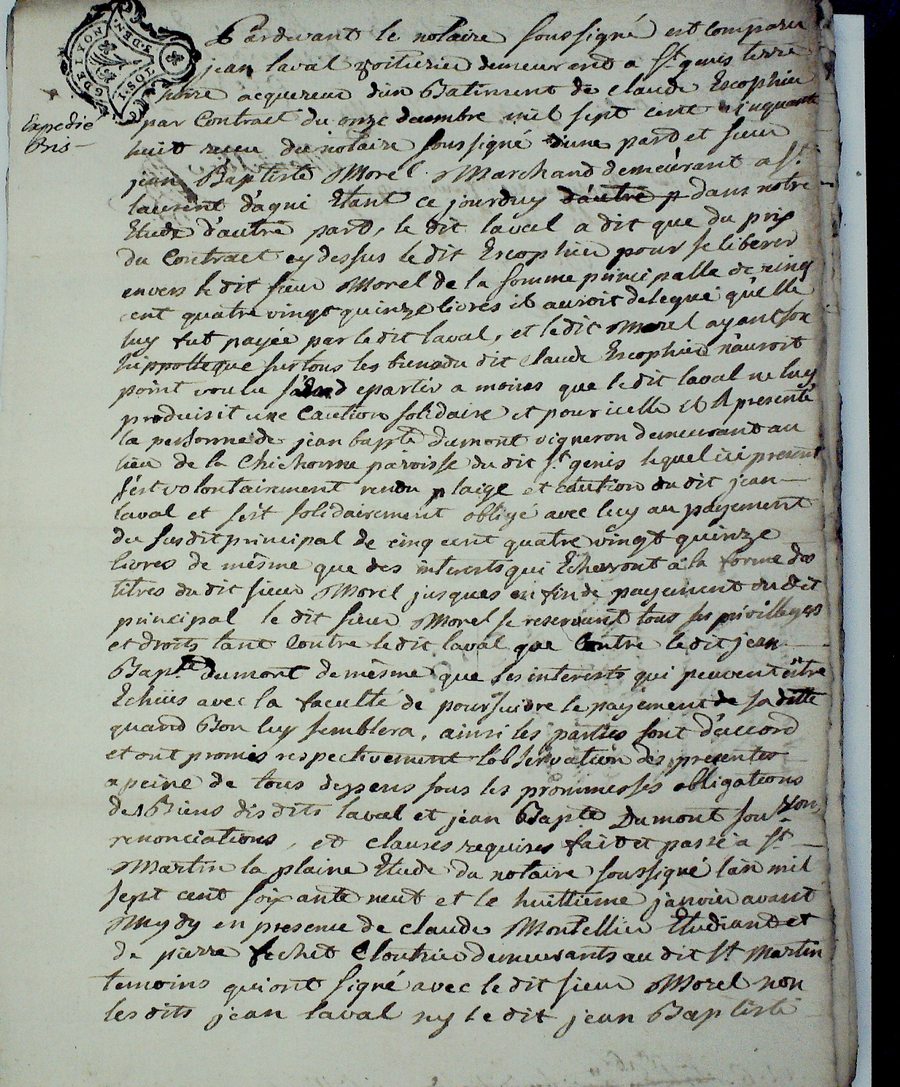 GDE LYON
2 S. DEN.
1 SOL
Expedié
Bris
Pardevant le notaire soussigné est comparu
jean laval voiturier demeurent a St. genis terre
noire acquereur d'un Batiment de claude Escophier
par contract du onze decembre mil sept cent cinquante
huit receu du notaire soussigné d'une part et sieur
jean Baptiste Morel Marchand demeurant a St.
laurent d'agni Etant ce jourduy d'autre p dans notre
Etude d'autre part, le dit laval a dit que du prix
du Contract cy dessus le dit Escophier pour se liberer
envers le dit sieur Morel de la somme principalle de cinq
cent quatre vingt quinze livres il auroit delegué qu'elle
luy fut payée par le dit laval, et le dit Morel ayant son
hippotteque sur tous les biens du dit claude Escophier n'auroit
point voulu s'en departir a moins que le dit laval ne luy
produisit une Caution solidaire et pour icelle il a presenté
la personne de jean bapte dumont vigneron demeurant au
lieu de la Chichonne paroisse du dit St. genis lequel ici present
s'est volontairement rendu plaige et caution du dit jean
laval et s'est solidairement obligé avec luy au payement
du susdit principal de cinq cent quatre vingt quinze
livres de même que des interests qui Echerront a la forme des
titres du dit sieur Morel jusques en fin de payement du dit
principal le dit sieur Morel se reservant tous ses privilleges
et droits tant Contre le dit laval que Contre le dit jean
Bapte dumont de même que les interests qui peuvent être
Echûs avec la faculté de poursuivre le payement de sa ditte
quand Bon luy semblera, ainsi les parties sont d'accord
et ont promis respectivement l'observation des presentes
a peine de tous depens sous les prommesses obligations
des Biens des dits laval et jean Bapte Dumont sou
renonciations, et clauses requises fait et passé a St.
Martin la plaine Etude du notaire soussigné l'an mil
sept cent soixante neuf et le huittieme janvier avant
Mydy en presence de claude Montellier Etudiant et
de pierre fechet Cloutrier demeurants au dit St. Martin
temoins qui ont signé avec le dit sieur Morel non
les dits jean laval ny le dit jean Baptiste